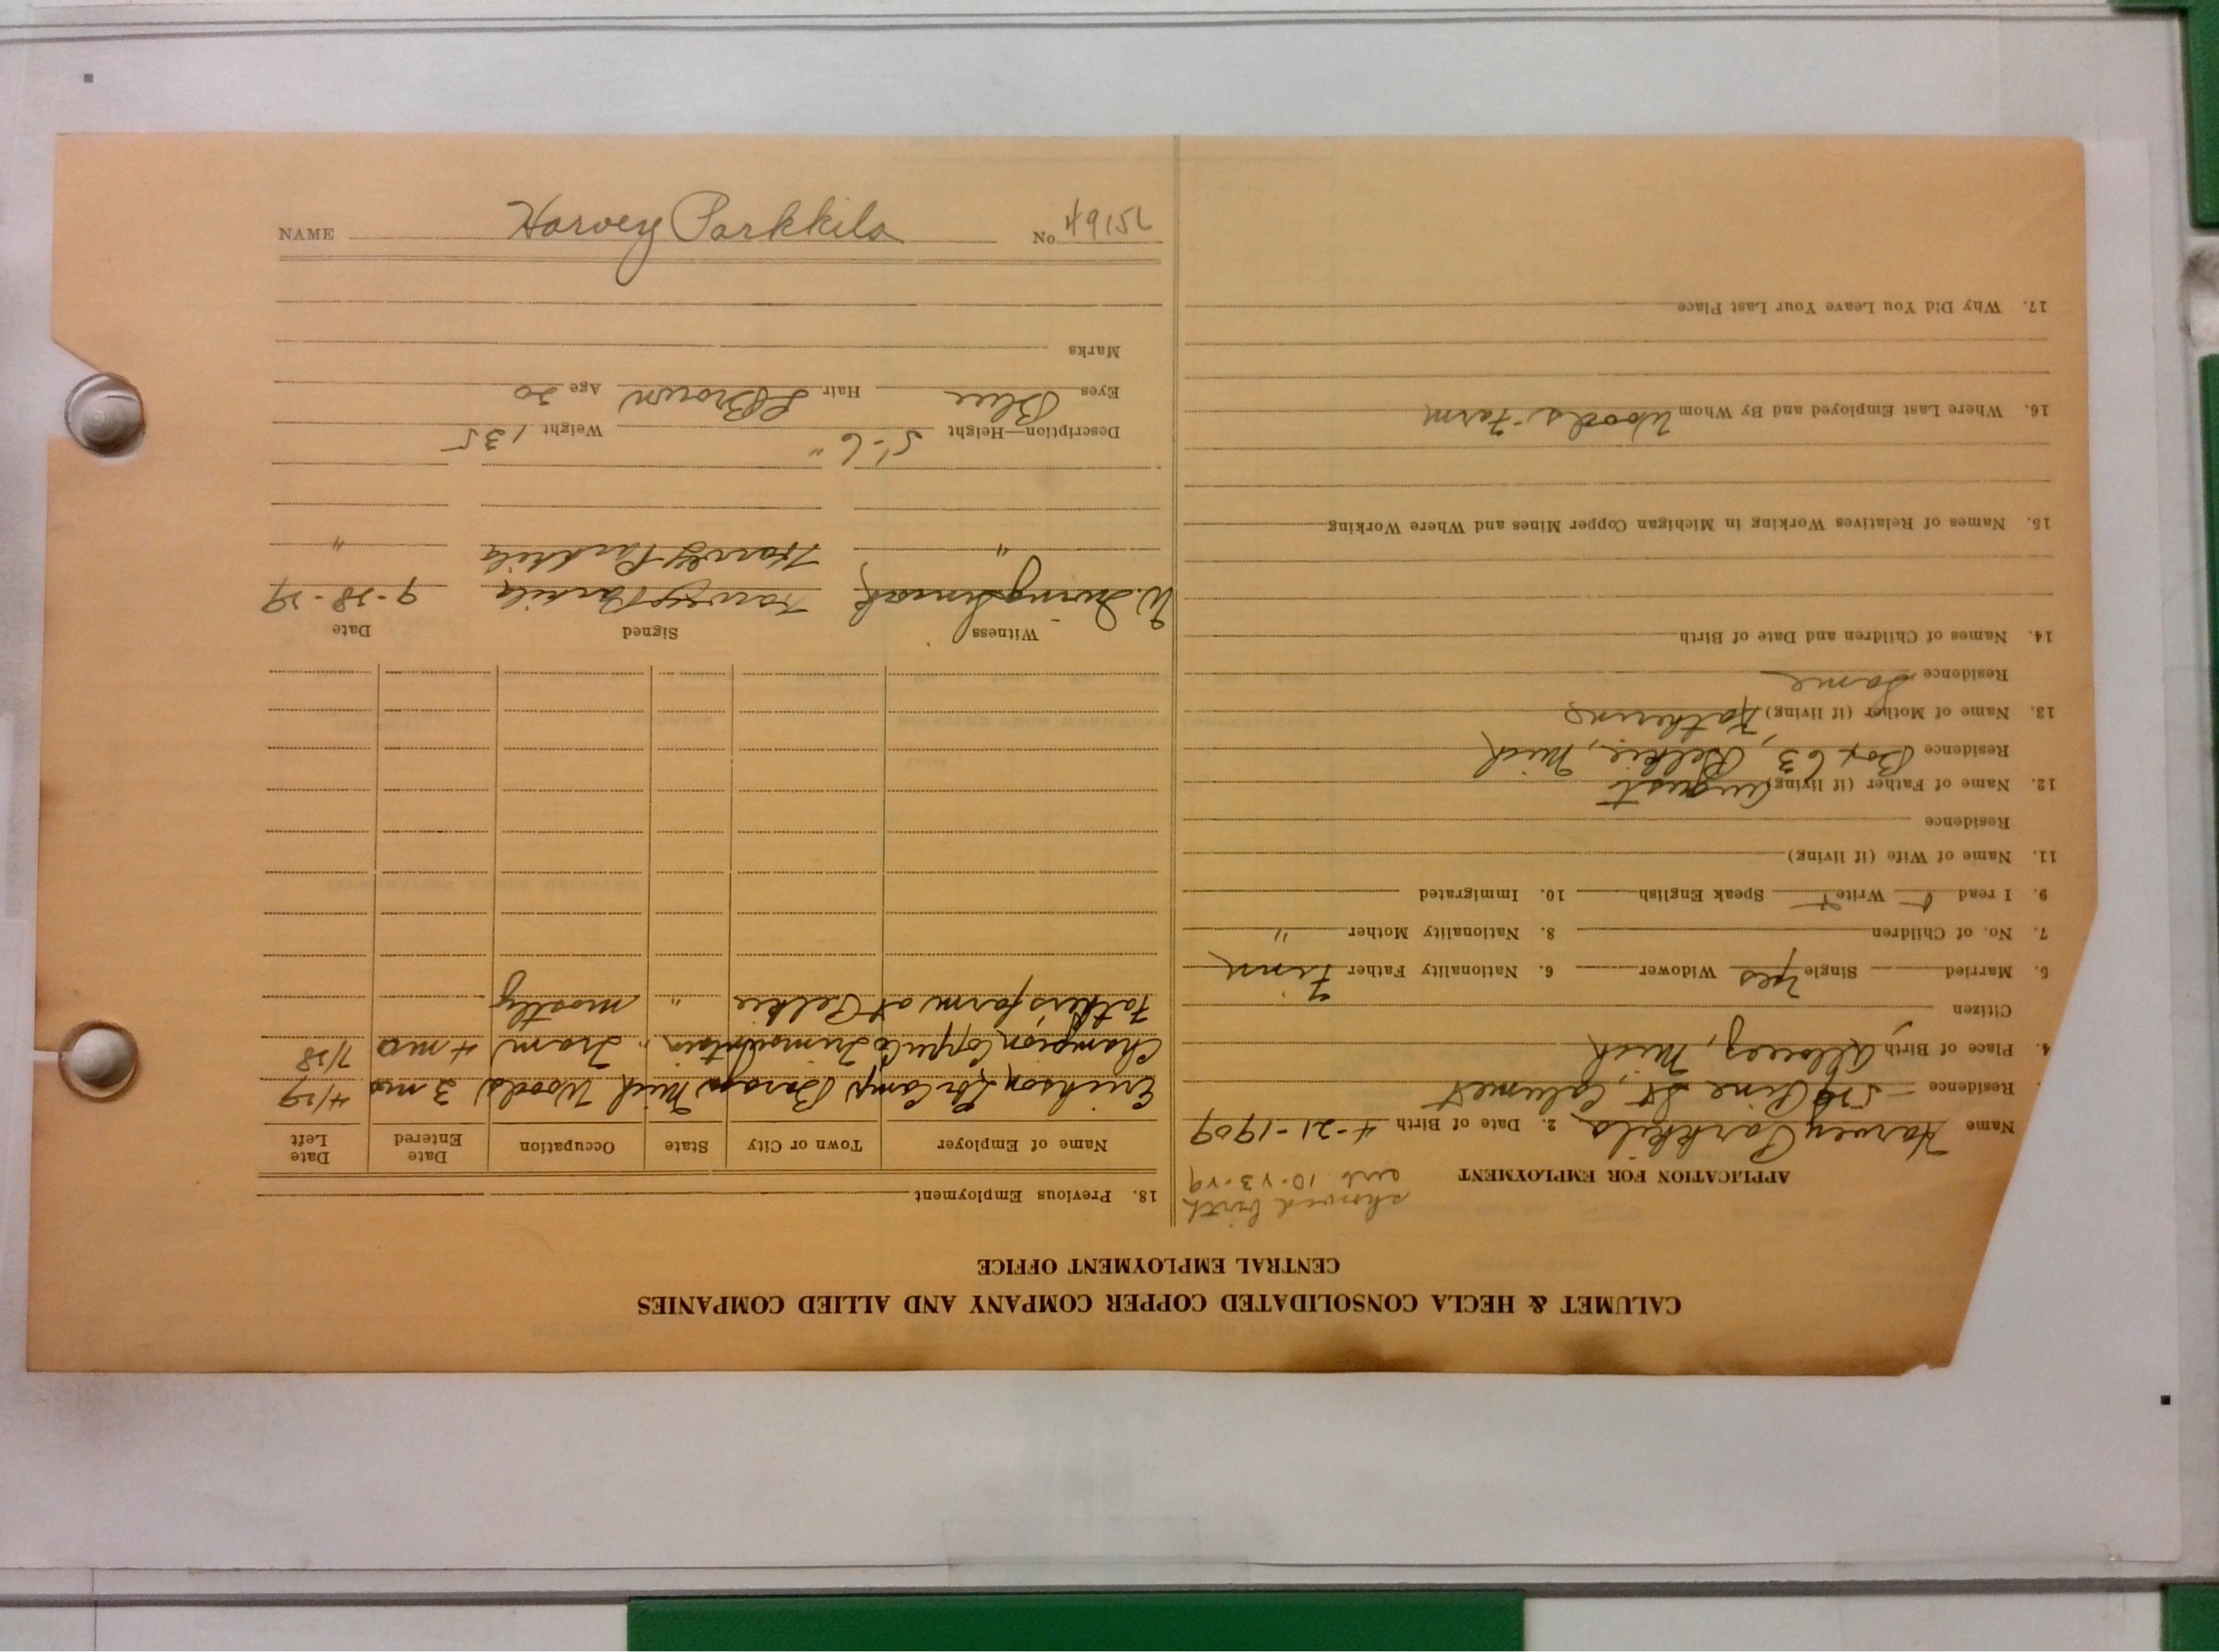 CALUMET & HECLA CONSOLIDATED COPPER COMPANY AND ALLIED COMPANIES
CENTRAL EMPLOYMENT OFFICE
APPLICATION FOR EMPLOYMENT
showed birth
cert. 10-23-29
Name Harvey Parkkila 2. Date of Birth 4-21-1909
Residence Pine St, Calumet
4. Place of Birth Allouez, Mich
Citizen
5. Married Single yes Widower 6. Nationality Father Finn
7. No. of Children 8. Nationality Mother "
9. I read Write Speak English 10. Immigrated
11. Name of Wife (if living)
Residence
12. Name of Father (if living) August
Residence Box 63, Pelkie, Mich
13. Name of Mother (if living) Katherine
Residence Same
14. Names of Children and Date of Birth
15. Names of Relatives Working in Michigan Copper Mines and Where Working
16. Where Last Employed and By Whom Woods-Farm
17. Why Did You Leave Your Last Place
18. Previous Employment
Name of Employer Town or City State Occupation Date Entered Date Left
Erickson Camp Baraga Mich Woods 3 mo 4/29
Champion Copper Co Trimountain " Tram 4 mo 7/28
Father's farm at Pelkie " mostly
Witness Signed Date
W. Harvey Parkkila 9-28-29
" Harvey Parkkila "
Description—Height 5'-6" Weight 135
Eyes Blue Hair L Brown Age 20
Marks
NAME Harvey Parkkila No 49152